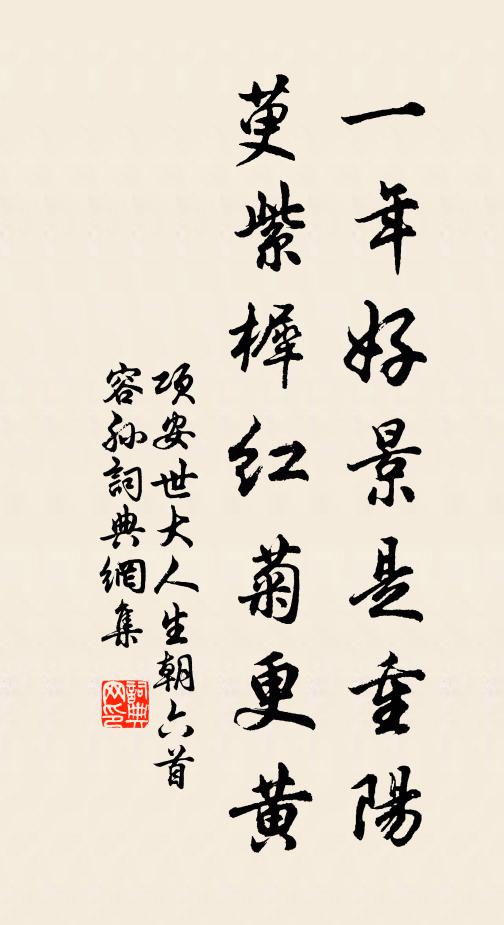 一年好景是重陽
萸紫樨紅菊更黃
項安世大人生朝六首
容孫詞典網集
詞典
网印